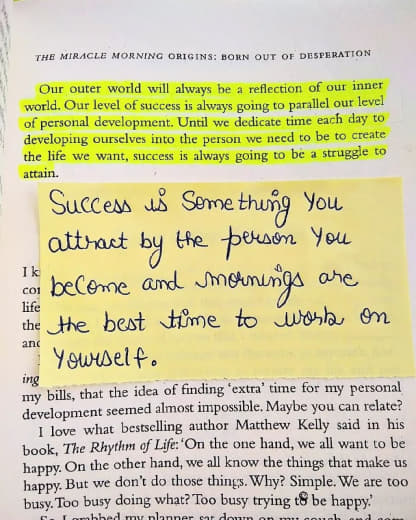 THE MIRACLE MORNING ORIGINS: BORN OUT OF DESPERATION
Our outer world will always be a reflection of our inner
world. Our level of success is always going to parallel our level
of personal development. Until we dedicate time each day to
developing ourselves into the person we need to be to create
the life we want, success is always going to be a struggle to
attain.
Success is Something You
attract by the person You
become and mornings are
the best time to work on
Yourself.
I
life
the
ing
my bills, that the idea of finding ‘extra’ time for my personal
development seemed almost impossible. Maybe you can relate?
I love what bestselling author Matthew Kelly said in his
book, The Rhythm of Life: ‘On the one hand, we all want to be
happy. On the other hand, we all know the things that make us
happy. But we don’t do those things. Why? Simple. We are too
busy. Too busy doing what? Too busy trying to be happy.’